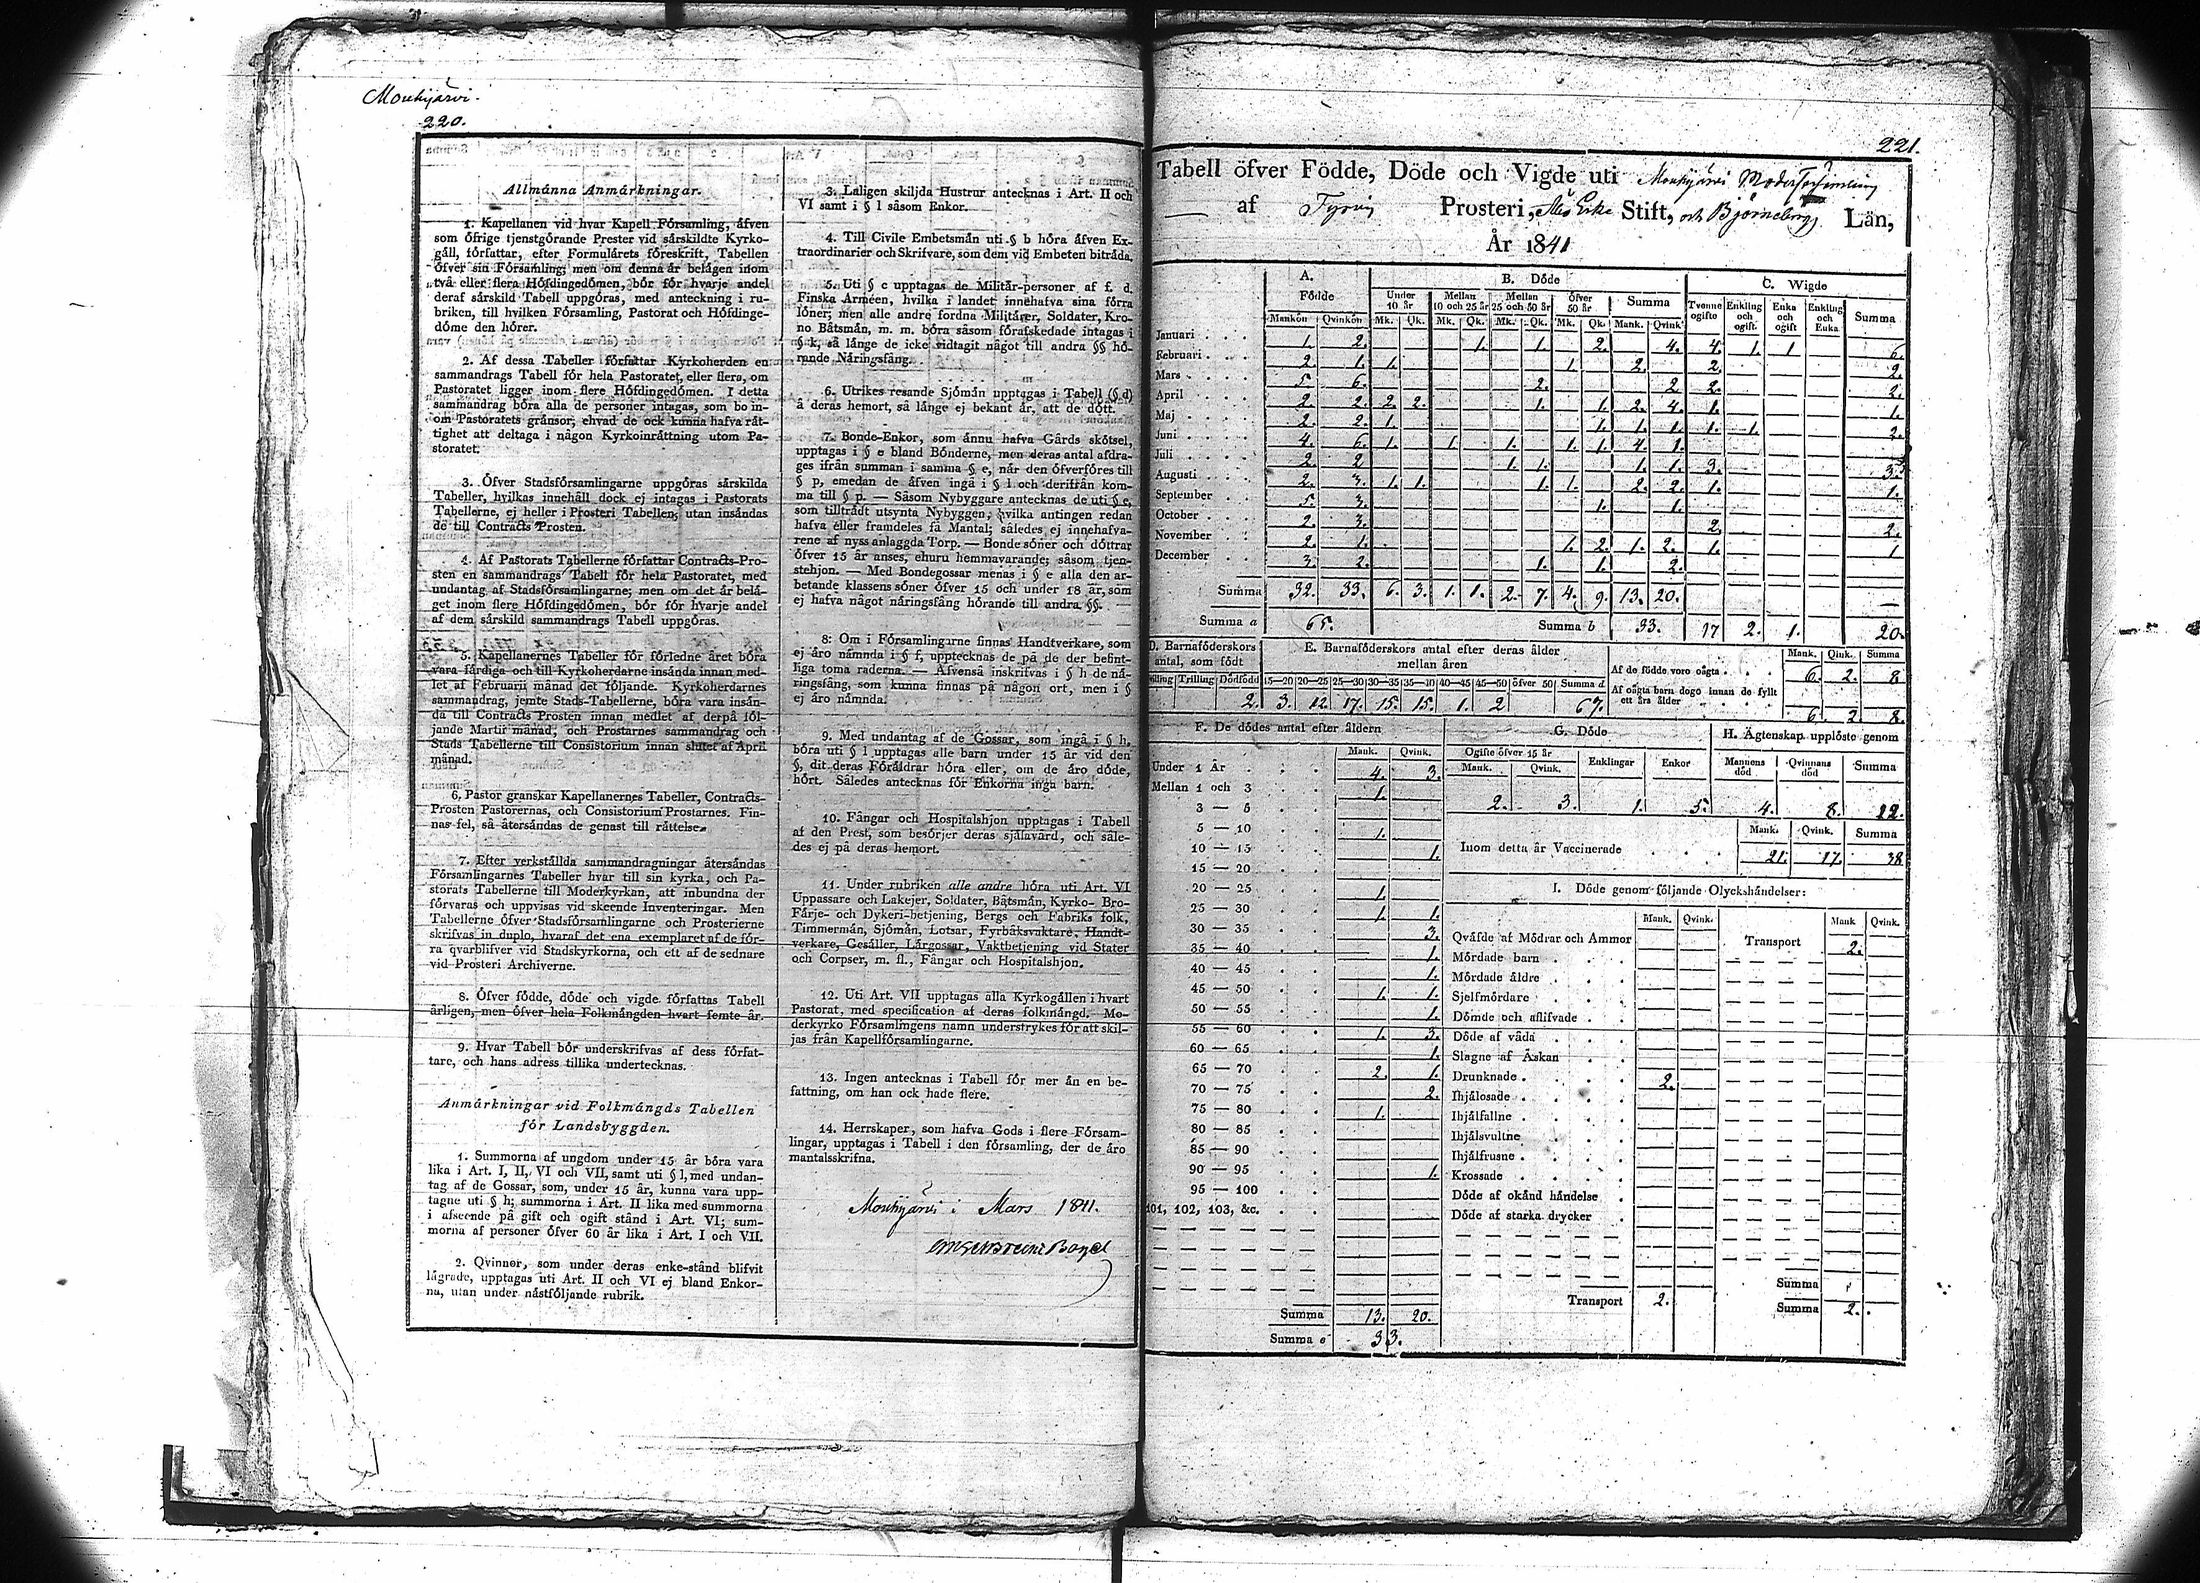 Mouhijärvi.
220.
Allmánna Anmárkningar.
1. Kapellanen vid hvar Kapell Fórsamling, áfven
som ófrige tjenstgórande Prester vid sárskildte Kyrko-
gáll, fórfattar, efter Formulárets fóreskrift, Tabellen
ófver sin Fórsamling; men om denna ár belágen inom
två eller flera Hófdingedómen, bór fór hvarje andel
deraf sárskild Tabell uppgóras, med anteckning i ru-
briken, till hvilken Fórsamling, Pastorat och Hófdinge-
dóme den hórer.
2. Af dessa Tabeller fórfattar Kyrkoherden en
sammandrags Tabell fór hela Pastoratet, eller flera, om
Pastoratet ligger inom flere Hófdingedómen. I detta
sammandrag bóra alla de personer intagas, som bo in-
om Pastoratets gránsor, ehvad de ock kunna hafva rát-
tighet att deltaga i någon Kyrkoinráttning utom Pa-
storatet.
3. Ófver Stadsfórsamlingarne uppgóras sárskilda
Tabeller, hvilkas innehåll dock ej intagas i Pastorats
Tabellerne, ej heller i Prosteri Tabellen; utan insándas
de till Contracts Prosten.
4. Af Pastorats Tabellerne fórfattar Contracts-Pro-
sten en sammandrags Tabell fór hela Pastoratet, med
undantag af Stadsfórsamlingarne; men om det ár belá-
get inom flere Hófdingedómen, bór fór hvarje andel
af dem sárskild sammandrags Tabell uppgóras.
5. Kapellanernes Tabeller fór fórledne året bóra
vara fárdiga och till Kyrkoherdarne insánda innan med-
let af Februarii månad det fóljande. Kyrkoherdarnes
sammandrag, jemte Stads-Tabellerne, bóra vara insán-
da till Contracts Prosten innan medlet af derpå fól-
jande Martii månad, och Prostarnes sammandrag och
Stads Tabellerne till Consistorium innan slutet af April
månad.
6. Pastor granskar Kapellanernes Tabeller, Contracts-
Prosten Pastorernas, och Consistorium Prostarnes. Fin-
nas fel, så återsándas de genast till ráttelse.
7. Efter verkstállda sammandragningar återsándas
Fórsamlingarnes Tabeller hvar till sin kyrka, och Pa-
storats Tabellerne till Moderkyrkan, att inbundna der
fórvaras och uppvisas vid skeende Inventeringar. Men
Tabellerne ófver Stadsfórsamlingarne och Prosterierne
skrifvas in duplo, hvaraf det ena exemplaret af de fór-
ra qvarblifver vid Stadskyrkorna, och ett af de sednare
vid Prosteri Archiverne.
8. Ófver fódde, dóde och vigde fórfattas Tabell
årligen, men ófver hela Folkmángden hvart femte år.
9. Hvar Tabell bór underskrifvas af dess fórfat-
tare, och hans adress tillika undertecknas.
Anmárkningar vid Folkmángds Tabellen
fór Landsbyggden.
1. Summorna af ungdom under 15 år bóra vara
lika i Art. I, II, VI och VII, samt uti § l, med undan-
tag af de Gossar, som, under 15 år, kunna vara upp-
tagne uti § h; summorna i Art. II lika med summorna
i afseende på gift och ogift stånd i Art. VI; sum-
morna af personer ófver 60 år lika i Art. I och VII.
2. Qvinnor, som under deras enke-stånd blifvit
lágrade, upptagas uti Art. II och VI ej bland Enkor-
na, utan under nástfóljande rubrik.
3. Laligen skiljda Hustrur antecknas i Art. II och
VI samt i § l såsom Enkor.
4. Till Civile Embetsmán uti § b hóra áfven Ex-
traordinarier och Skrifvare, som dem vid Embeten bitráda.
5. Uti § c upptagas de Militár-personer af f. d.
Finska Arméen, hvilka i landet innehafva sina fórra
lóner; men alle andre fordna Militárer, Soldater, Kro-
no Båtsmán, m. m. bóra såsom fórafskedade intagas i
§ k, så lánge de icke vidtagit något till andra §§ hó-
rande Náringsfång.
6. Utrikes resande Sjómán upptagas i Tabell (§ d)
å deras hemort, så lánge ej bekant ár, att de dótt.
7. Bonde-Enkor, som ánnu hafva Gårds skótsel,
upptagas i § e bland Bónderne, men deras antal afdra-
ges ifrån summan i samma § e, nár den ófverfóres till
§ p, emedan de áfven ingå i § l och derifrån kom-
ma till § p. — Såsom Nybyggare antecknas de uti § e,
som tilltrådt utsynta Nybyggen, hvilka antingen redan
hafva eller framdeles få Mantal; således ej innehafva-
rene af nyss anlaggda Torp. — Bonde sóner och dóttrar
ófver 15 år anses, ehuru hemmavarande, såsom tjen-
stehjon. — Med Bondegossar menas i § e alla den ar-
betande klassens sóner ófver 15 och under 18 år, som
ej hafva något náringsfång hórande till andra §§.
8: Om i Fórsamlingarne finnas Handtverkare, som
ej áro námnda i § f, upptecknas de på de der befint-
liga toma raderna. — Áfvenså inskrifvas i § h de ná-
ringsfång, som kunna finnas på någon ort, men i §
ej áro námnda.
9. Med undantag af de Gossar, som ingå i § h,
bóra uti § l upptagas alle barn under 15 år vid den
§, dit deras Fóráldrar hóra eller, om de áro dóde,
hórt. Således antecknas fór Enkorna inga barn.
10. Fångar och Hospitalshjon upptagas i Tabell
af den Prest, som besórjer deras sjálavård, och såle-
des ej på deras hemort.
11. Under rubriken alle andre hóra uti Art. VI
Uppassare och Lakejer, Soldater, Båtsmán, Kyrko- Bro-
Fárje- och Dykeri-betjening, Bergs och Fabriks folk,
Timmermán, Sjómán, Lotsar, Fyrbåksvaktare, Handt-
verkare, Gesáller, Lárgossar, Vaktbetjening vid Stater
och Corpser, m. fl., Fångar och Hospitalshjon.
12. Uti Art. VII upptagas alla Kyrkogállen i hvart
Pastorat, med specification af deras folkmángd. Mo-
derkyrko Fórsamlingens namn understrykes fór att skil-
jas från Kapellfórsamlingarne.
13. Ingen antecknas i Tabell fór mer án en be-
fattning, om han ock hade flere.
14. Herrskaper, som hafva Gods i flere Fórsam-
lingar, upptagas i Tabell i den fórsamling, der de áro
mantalsskrifna.
Mouhijärvi i Mars 1841.
221.
Tabell öfver Födde, Döde och Vigde uti Mouhijärvi Moderförsamling
af Tyrvis Prosteri, Åbo Erke Stift, och Björneborgs Län,
År 1841
A. B. Dóde C. Wigde
Fódde Under 10 år Mellan 10 och 25 år Mellan 25 och 50 år Ófver 50 år Summa Tvenne ogifte Enkling och ogift. Enka och ogift Enkling och Enka Summa
Mankón Qvinkón Mk. Qk. Mk. Qk. Mk. Qk. Mk. Qk. Mank. Qvink.
Januari 1. 2. 1. 1. 2. 4. 4. 1. 1 6.
Februari 2. 1. 1. 1. 2. 2. 2.
Mars 5. 6. 2. 2 2. 2.
April 2. 2. 2. 2. 1. 1. 2. 4. 1. 1.
Maj 2. 2. 1. 1. 1. 1. 1. 1. 2.
Juni 4. 6. 1. 1. 1. 1. 1. 4. 1.
Juli 2. 2 1. 1. 1. 1. 3. 3.
Augusti 2. 3. 1. 1. 1. 1. 2. 2. 1. 1.
September 5. 3. 1. 1.
October 2. 3. 2. 2.
November 2. 1. 1. 2. 1. 2. 1. 1
December 3. 2. 1. 1. 2.
Summa 32. 33. 6. 3. 1. 1. 2. 7. 4. 9. 13. 20.
Summa a 65. Summa b 33. 17 2. 1. 20.
D. Barnafóderskors antal, som fódt
Trilling Dódfódd
2.
E. Barnafóderskors antal efter deras ålder
mellan åren
15—20 20—25 25—30 30—35 35—40 40—45 45—50 ófver 50 Summa d
3. 12. 17. 15. 15. 1. 2 67.
Mank. Qvink. Summa
Af de fódde voro oágta 6. 2. 8
Af oágta barn dogo innan de fyllt
ett års ålder 6. 2. 8.
F. De dódes antal efter åldern
Mank. Qvink.
Under 1 År 4. 3.
Mellan 1 och 3 1.
3 — 5
5 — 10 1.
10 — 15 1.
15 — 20
20 — 25 1.
25 — 30 1. 1.
30 — 35 3.
35 — 40 1.
40 — 45 1.
45 — 50 1. 1.
50 — 55 1.
55 — 60 1. 3.
60 — 65 1.
65 — 70 2. 1.
70 — 75 2.
75 — 80 1.
80 — 85
85 — 90
90 — 95 1.
95 — 100
101, 102, 103, &c.
Summa 13. 20.
Summa e 33.
G. Dóde
Ogifte ófver 15 år Enklingar Enkor
Mank. Qvink.
2. 3. 1. 5.
H. Ágtenskap upplóste genom
Mannens dód Qvinnans dód Summa
4. 8. 12.
Mank. Qvink. Summa
Inom detta år Vaccinerade 21. 17. 38
I. Dóde genom fóljande Olyckshándelser:
Mank. Qvink. Mank Qvink.
Qváfde af Módrar och Ammor Transport 2.
Mórdade barn
Mórdade áldre
Sjelfmórdare
Dómde och aflifvade
Dóde af våda
Slagne af Åskan
Drunknade 2.
Ihjálosade
Ihjálfallne
Ihjálsvultne
Ihjálfrusne
Krossade
Dóde af okánd hándelse
Dóde af starka drycker
Summa
Transport 2. Summa 2.